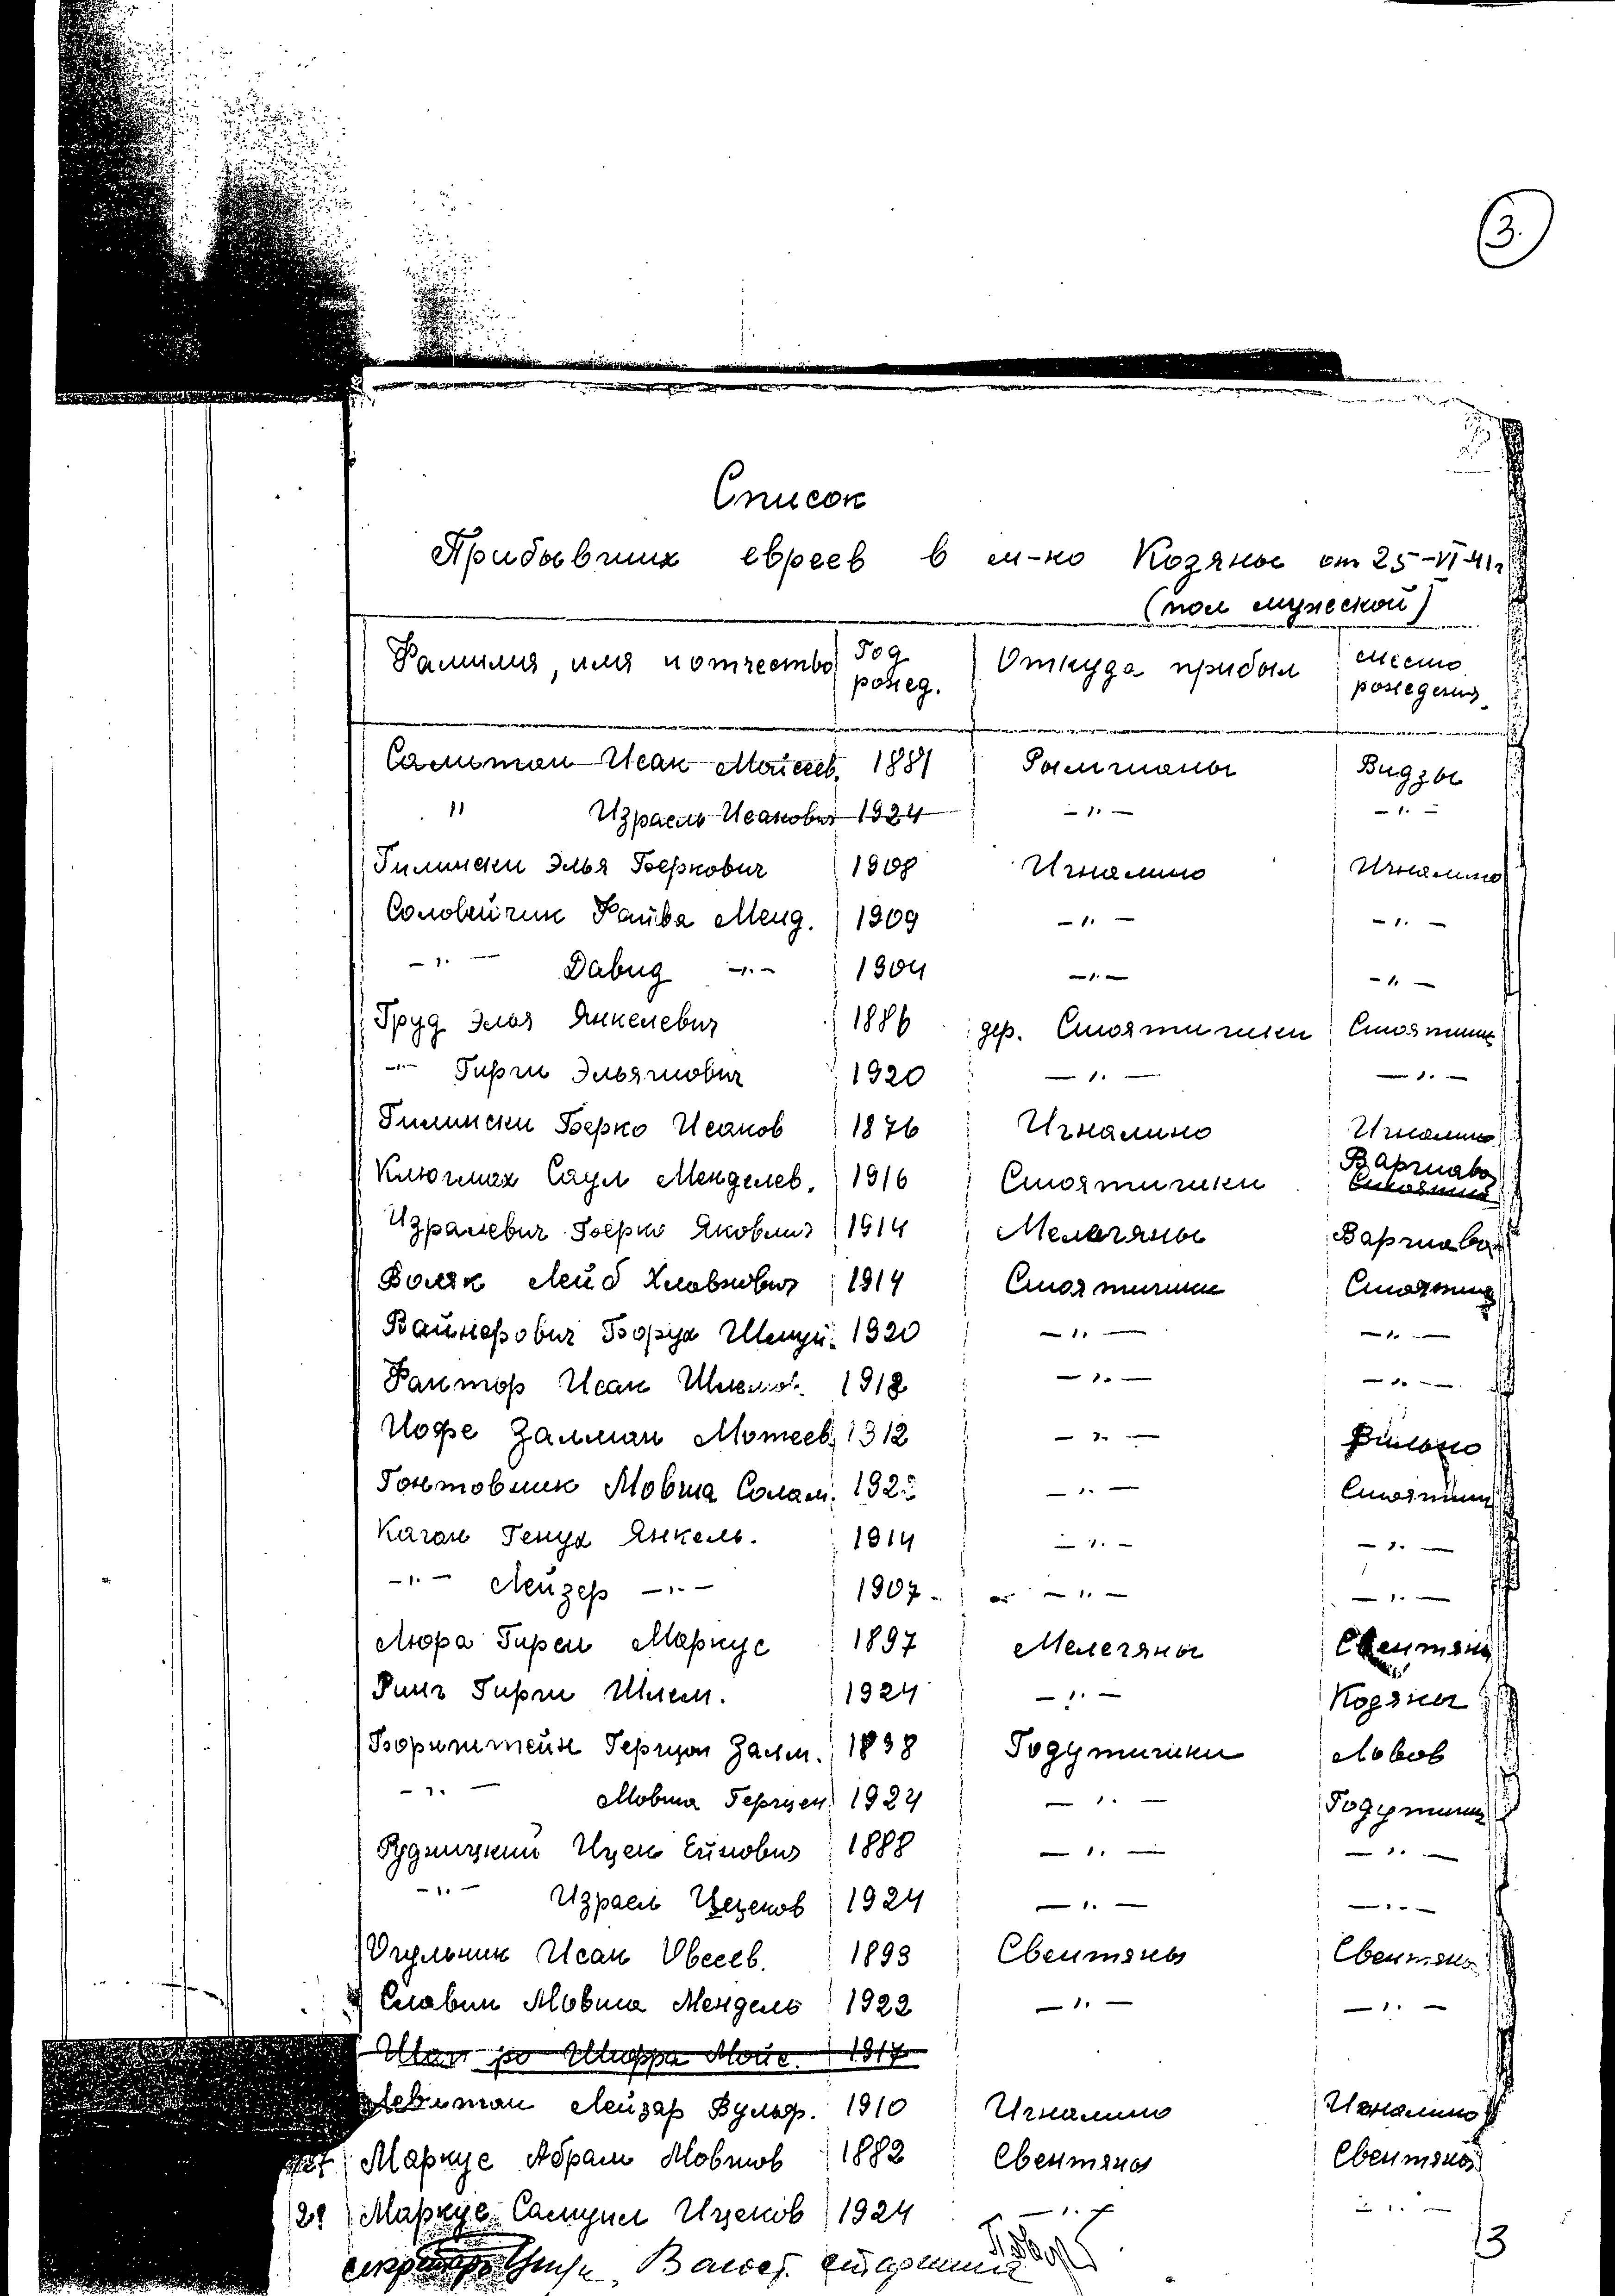 3.
Список
Прибывших евреев в м-ко Козяны от 25-VI-41г
(пол мужеской)
Фамилия, имя и отчество Год рожед. Откуда прибыл место рожедения
Сальтан Исак Мойсеев. 1881 Рымшаны Видзы
" Израель Исакович 1924 -"- -"-
Гилински Элья Беркович 1908 Игналино Игналино
Соловейчик Файва Менд. 1909 -"- -"-
-"- Давид -"- 1904 -"- -"-
Груд Элья Янкелевич 1886 дер. Стоятишки Стоятишк
-"- Гирш Эльяшович 1920 -"- -"-
Гилински Берко Исаков 1876 Игналино Игналино
Ключмах Саул Менделев. 1916 Стоятишки Варшава
Изралевич Берко Яковлич 1914 Мелегяны Варшава
Воляк Лейб Хлавнович 1914 Стоятишки Стоятишк
Вайнерович Борух Шмуй. 1920 -"- -"-
Фактор Исак 1918 -"- -"-
Иофе Залман Мотеев. 1912 -"- Вильно
Гонтовник Мовша Солом. 192 -"- Стоятишк
Каган Генух Янкель. 1914 -"- -"-
-"- Лейзер -"- 1907 -"- -"-
Люра Гирш Маркус 1897 Мелегяны Свентяны
Ринг Гирш Шлем. 1924 -"- Козяны
Борнштейн Герцон Залм. 1898 Годутишки Львов
-"- Мовша Герцен. 1924 -"- Годутишк
Рудницкий Ицек Ейнович 1888 -"- -"-
-"- Израель Ицеков 1924 -"- -"-
Огульник Исак Овсеев. 1893 Свентяны Свентяны
Славин Мовша Мендель 1922 -"- -"-
Шапиро Мойс. 1917
Левитан Лейзар Вульф. 1910 Игналино Игналино
27 Маркус Абрам Мовшов 1882 Свентяны Свентяны
28 Маркус Самуил Ицеков 1924 -"- -"-
секретарь Волост. старшина
3